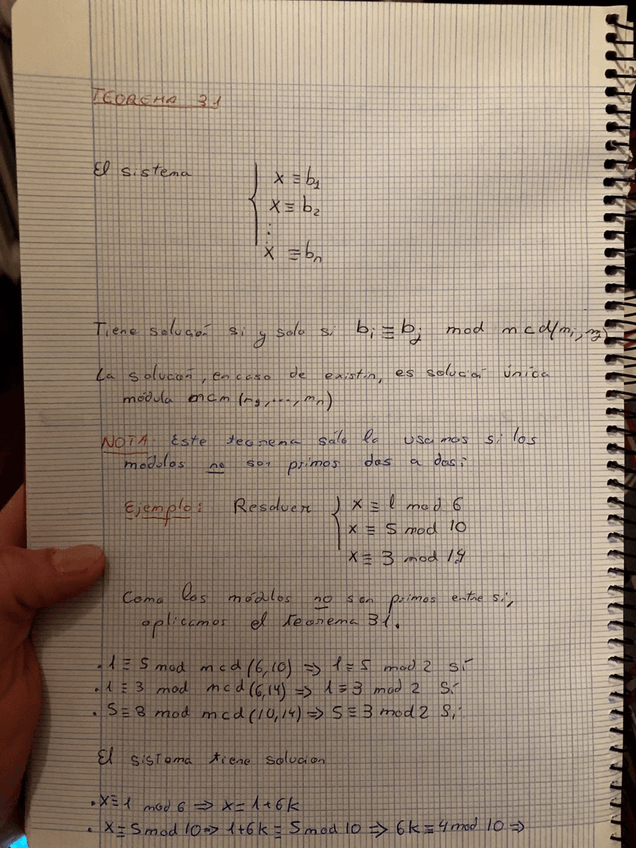 TEOREMA 31
El sistema
x ≡ b₁
x ≡ b₂
⋮
x ≡ bₙ
Tiene solución si y solo si bᵢ ≡ bⱼ mod mcd(mᵢ,
La solución, en caso de existir, es solución única
módulo mcm (     ,..., mₙ)
NOTA: Este teorema sólo lo usamos si los
módulos no son primos dos a dos:
Ejemplo: Resolver
x ≡ 1 mod 6
x ≡ 5 mod 10
x ≡ 3 mod 14
Como los módulos no son primos entre sí,
aplicamos el teorema 31.
. 1 ≡ 5 mod mcd (6,10) => 1 ≡ 5 mod 2 Sí
. 1 ≡ 3 mod mcd (6,14) => 1 ≡ 3 mod 2 Sí
. 5 ≡ 3 mod mcd (10,14) => 5 ≡ 3 mod 2 Sí
El sistema tiene solución
. x ≡ 1 mod 6 => x = 1+6k
. x ≡ 5 mod 10 => 1+6k ≡ 5 mod 10 => 6k ≡ 4 mod 10 =>